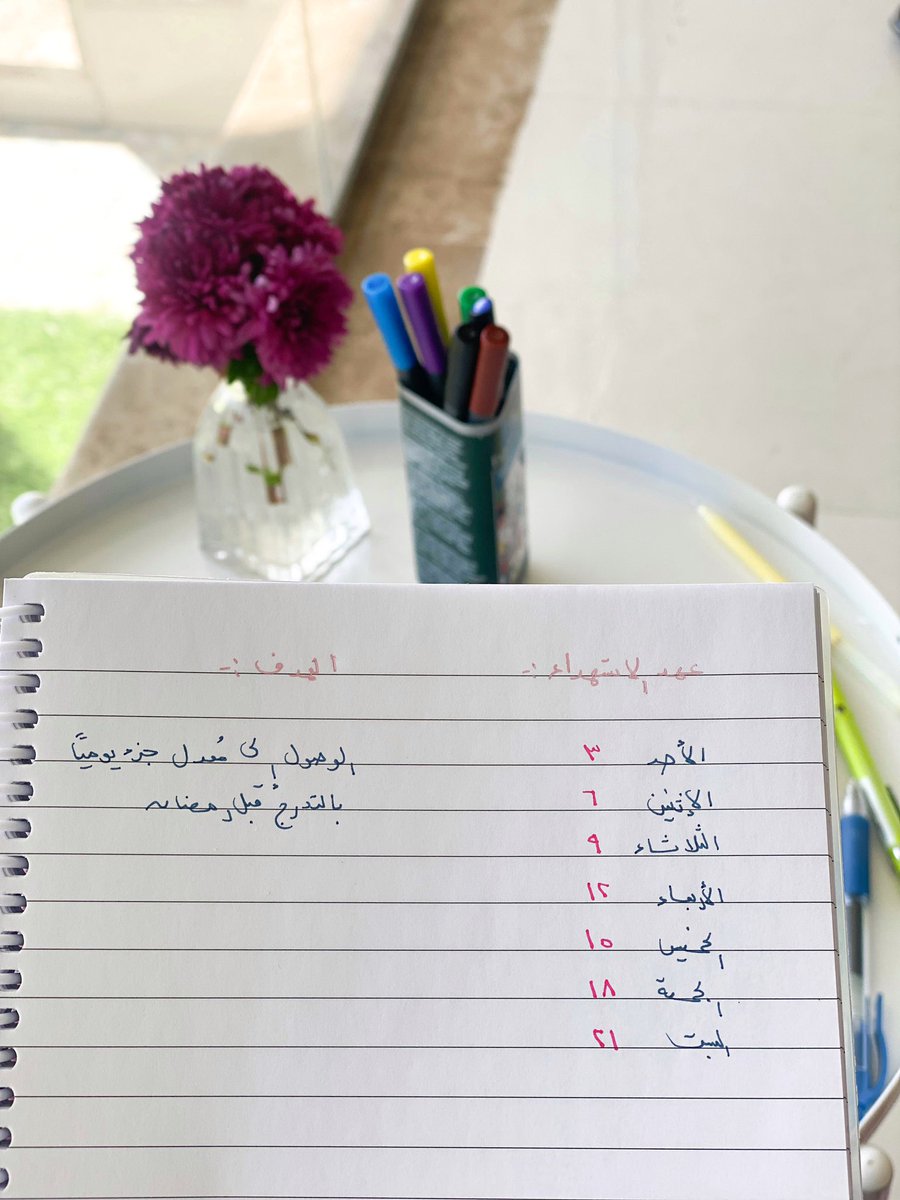 عهد الاستهداء :-
الهدف :-
الأحد ٣
الإثنين ٦
الثلاثاء ٩
الأربعاء ١٢
الخميس ١٥
الجمعة ١٨
السبت ٢١
الوصول إلى مُعدل جزء يوميًا
بالتدرج قبل رمضان